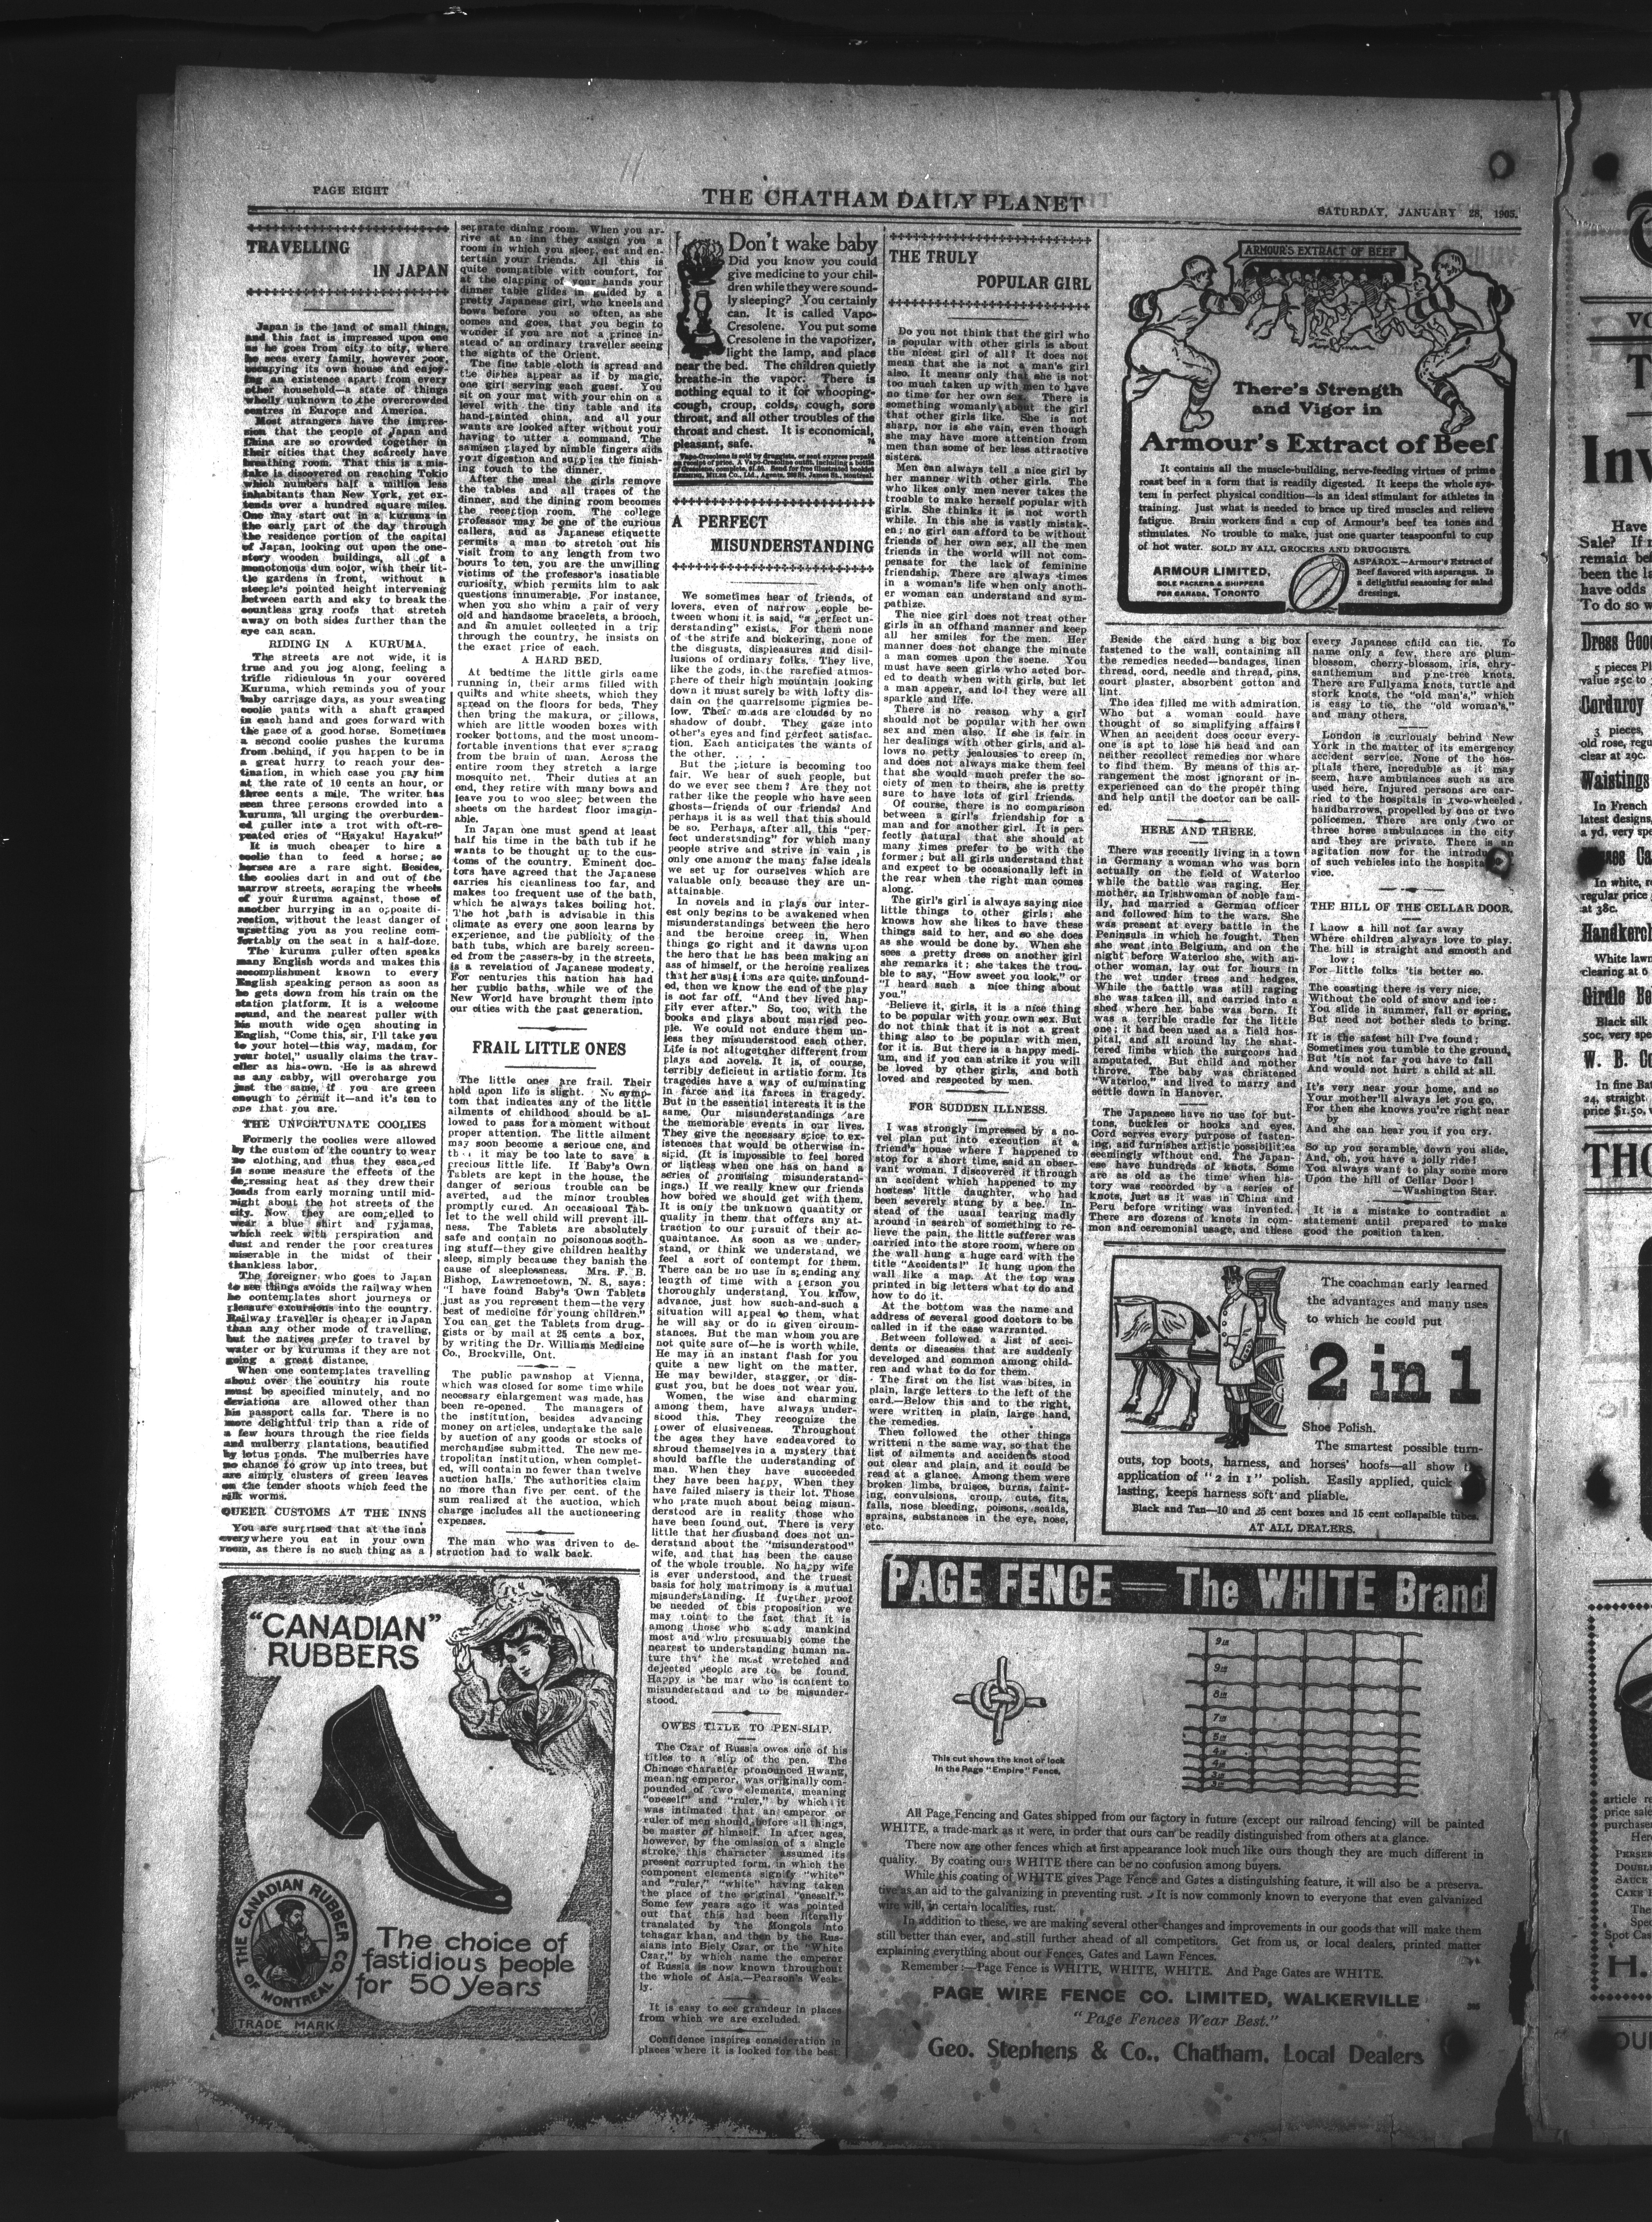 PAGE EIGHT
THE CHATHAM DAILY PLANET
SATURDAY, JANUARY 28, 1905.
TRAVELLING
IN JAPAN
Japan is the land of small things,
and this fact is impressed upon one
as he goes from city to city, where
he sees every family, however poor,
occupying its own house and enjoy-
ing an existence apart from every
other household—a state of things
wholly unknown to the overcrowded
centres in Europe and America.
Most strangers have the impres-
sion that the people of Japan and
China are so crowded together in
their cities that they scarcely have
breathing room. That this is a mis-
take is discovered on reaching Tokio
which numbers half a million less
inhabitants than New York, yet ex-
tends over a hundred square miles.
One may start out in a kuruma in
the early part of the day through
the residence portion of the capital
of Japan, looking out upon the one-
story wooden buildings, all of a
monotonous dun color, with their lit-
tle gardens in front, without a
steeple's pointed height intervening
between earth and sky to break the
countless gray roofs that stretch
away on both sides further than the
eye can scan.
RIDING IN A KURUMA.
The streets are not wide, it is
true and you jog along, feeling a
trifle ridiculous in your covered
Kuruma, which reminds you of your
baby carriage days, as your sweating
coolie pants with a shaft grasped
in each hand and goes forward with
the pace of a good horse. Sometimes
a second coolie pushes the kuruma
from behind, if you happen to be in
a great hurry to reach your des-
tination, in which case you pay him
at the rate of 10 cents an hour, or
three cents a mile. The writer has
seen three persons crowded into a
kuruma, all urging the overburden-
ed puller into a trot with oft-re-
peated cries of "Hayaku! Hayaku!"
It is much cheaper to hire a
coolie than to feed a horse; so
horses are a rare sight. Besides,
the coolies dart in and out of the
narrow streets, scraping the wheels
of your kuruma against, those of
another hurrying in an opposite di-
rection, without the least danger of
upsetting you as you recline com-
fortably on the seat in a half-doze.
The kuruma puller often speaks
many English words and makes this
accomplishment known to every
English speaking person as soon as
he gets down from his train on the
station platform. It is a welcome
sound, and the nearest puller with
his mouth wide open shouting in
English, "Come this, sir, I'll take you
to your hotel—this way, madam, for
your hotel," usually claims the trav-
eller as his own. He is as shrewd
as any cabby, will overcharge you
just the same, if you are green
enough to permit it—and it's ten to
one that you are.
THE UNFORTUNATE COOLIES
Formerly the coolies were allowed
by the custom of the country to wear
no clothing, and thus they escaped
in some measure the effects of the
depressing heat as they drew their
loads from early morning until mid-
night about the hot streets of the
city. Now they are compelled to
wear a blue shirt and pyjamas,
which reek with perspiration and
dust and render the poor creatures
miserable in the midst of their
thankless labor.
The foreigner who goes to Japan
to see things avoids the railway when
he contemplates short journeys or
pleasure excursions into the country.
Railway traveller is cheaper in Japan
than any other mode of travelling,
but the natives prefer to travel by
water or by kurumas if they are not
going a great distance.
When one contemplates travelling
about over the country his route
must be specified minutely, and no
deviations are allowed other than
his passport calls for. There is no
more delightful trip than a ride of
a few hours through the rice fields
and mulberry plantations, beautified
by lotus ponds. The mulberries have
no chance to grow up into trees, but
are simply clusters of green leaves
on the tender shoots which feed the
silk worms.
QUEER CUSTOMS AT THE INNS
You are surprised that at the inns
everywhere you eat in your own
room, as there is no such thing as a
separate dining room. When you ar-
rive at an inn they assign you a
room in which you sleep, eat and en-
tertain your friends. All this is
quite compatible with comfort, for
at the clapping of your hands your
dinner table glides in guided by a
pretty Japanese girl, who kneels and
bows before you so often, as she
comes and goes, that you begin to
wonder if you are not a prince in-
stead of an ordinary traveller seeing
the sights of the Orient.
The fine table cloth is spread and
the dishes appear as if by magic,
one girl serving each guest. You
sit on your mat with your chin on a
level with the tiny table and its
hand-painted china, and all your
wants are looked after without your
having to utter a command. The
samisen played by nimble fingers aids
your digestion and supplies the finish-
ing touch to the dinner.
After the meal the girls remove
the tables and all traces of the
dinner, and the dining room becomes
the reception room. The college
professor may be one of the curious
callers, and as Japanese etiquette
permits a man to stretch out his
visit from to any length from two
hours to ten, you are the unwilling
victims of the professor's insatiable
curiosity, which permits him to ask
questions innumerable. For instance,
when you sho whim a pair of very
old and handsome bracelets, a brooch,
and an amulet collected in a trip
through the country, he insists on
the exact price of each.
A HARD BED.
At bedtime the little girls came
running in, their arms filled with
quilts and white sheets, which they
spread on the floors for beds. They
then bring the makura, or pillows,
which are little wooden boxes with
rocker bottoms, and the most uncom-
fortable inventions that ever sprang
from the brain of man. Across the
entire room they stretch a large
mosquito net. Their duties at an
end, they retire with many bows and
leave you to woo sleep between the
sheets on the hardest floor imagin-
able.
In Japan one must spend at least
half his time in the bath tub if he
wants to be thought up to the cus-
toms of the country. Eminent doc-
tors have agreed that the Japanese
carries his cleanliness too far, and
makes too frequent use of the bath,
which he always takes boiling hot.
The hot bath is advisable in this
climate as every one soon learns by
experience, and the publicity of the
bath tubs, which are barely screen-
ed from the passers-by in the streets,
is a revelation of Japanese modesty.
For centuries this nation has had
her public baths, while we of the
New World have brought them into
our cities with the past generation.
FRAIL LITTLE ONES
The little ones are frail. Their
hold upon life is slight. No symp-
tom that indicates any of the little
ailments of childhood should be al-
lowed to pass for a moment without
proper attention. The little ailment
may soon become a serious one, and
it may be too late to save a
precious little life. If Baby's Own
Tablets are kept in the house, the
danger of serious trouble can be
averted, and the minor troubles
promptly cured. An occasional Tab-
let to the well child will prevent ill-
ness. The Tablets are absolutely
safe and contain no poisonous sooth-
ing stuff—they give children healthy
sleep, simply because they banish the
cause of sleeplessness. Mrs. F. B.
Bishop, Lawrencetown, N. S., says:
"I have found Baby's Own Tablets
just as you represent them—the very
best of medicine for young children."
You can get the Tablets from drug-
gists or by mail at 25 cents a box,
by writing the Dr. Williams Medicine
Co., Brockville, Ont.
The public pawnshop at Vienna,
which was closed for some time while
necessary enlargement was made, has
been re-opened. The managers of
the institution, besides advancing
money on articles, undertake the sale
by auction of any goods or stocks of
merchandise submitted. The new me-
tropolitan institution, when complet-
ed, will contain no fewer than twelve
auction halls. The authorities claim
no more than five per cent. of the
sum realized at the auction, which
charge includes all the auctioneering
expenses.
The man who was driven to de-
struction had to walk back.
"CANADIAN"
RUBBERS
THE CANADIAN RUBBER CO.
OF MONTREAL
TRADE MARK
The choice of
fastidious people
for 50 years
Don't wake baby
Did you know you could
give medicine to your chil-
dren while they were sound-
ly sleeping? You certainly
can. It is called Vapo-
Cresolene. You put some
Cresolene in the vaporizer,
light the lamp, and place
near the bed. The children quietly
breathe-in the vapor. There is
nothing equal to it for whooping-
cough, croup, colds, cough, sore
throat, and all other troubles of the
throat and chest. It is economical,
pleasant, safe.
Vapo-Cresolene is sold by druggists, or sent express prepaid
on receipt of price. A Vapo-Cresolene outfit, including a bottle
of Cresolene, complete, $1.50. Send for free illustrated booklet
LEEMING, MILES CO., Ltd., Agents, 288 St. James St., Montreal.
A PERFECT
MISUNDERSTANDING
We sometimes hear of friends, of
lovers, even of narrow people be-
tween whom it is said, "a perfect un-
derstanding" exists. For them none
of the strife and bickering, none of
the disgusts, displeasures and disil-
lusions of ordinary folks. They live,
like the gods, in the rarefied atmos-
phere of their high mountain looking
down it must surely be with lofty dis-
dain on the quarrelsome pigmies be-
low. Their minds are clouded by no
shadow of doubt. They gaze into
other's eyes and find perfect satisfac-
tion. Each anticipates the wants of
the other.
But the picture is becoming too
fair. We hear of such people, but
do we ever see them? Are they not
rather like the people who have seen
ghosts—friends of our friends? And
perhaps it is as well that this should
be so. Perhaps, after all, this "per-
fect understanding" for which many
people strive and strive in vain, is
only one among the many false ideals
we set up for ourselves which are
valuable only because they are un-
attainable.
In novels and in plays our inter-
est only begins to be awakened when
misunderstandings between the hero
and the heroine creep in. When
things go right and it dawns upon
the hero that he has been making an
ass of himself, or the heroine realizes
that her suspicions are quite unfound-
ed, then we know the end of the play
is not far off. "And they lived hap-
pily ever after." So, too, with the
books and plays about married peo-
ple. We could not endure them un-
less they misunderstood each other.
Life is not altogether different from
plays and novels. It is, of course,
terribly deficient in artistic form. Its
tragedies have a way of culminating
in farce and its farces in tragedy.
But in the essential interests it is the
same. Our misunderstandings are
the memorable events in our lives.
They give the necessary spice to ex-
istences that would be otherwise in-
sipid. (It is impossible to feel bored
or listless when one has on hand a
series of promising misunderstand-
ings.) If we really knew our friends
how bored we should get with them.
It is only the unknown quantity or
quality in them that offers any at-
traction to our pursuit of their ac-
quaintance. As soon as we under-
stand, or think we understand, we
feel a sort of contempt for them.
There can be no use in spending any
length of time with a person you
thoroughly understand. You know,
advance, just how such-and-such a
situation will appeal to them, what
he will say or do in given circum-
stances. But the man whom you are
not quite sure of—he is worth while.
He may in an instant flash for you
quite a new light on the matter.
He may bewilder, stagger, or dis-
gust you, but he does not wear you.
Women, the wise and charming
among them, have always under-
stood this. They recognize the
power of elusiveness. Throughout
the ages they have endeavored to
shroud themselves in a mystery that
should baffle the understanding of
man. When they have succeeded
they have been happy. When they
have failed misery is their lot. Those
who prate much about being misun-
derstood are in reality those who
have been found out. There is very
little that her husband does not un-
derstand about the "misunderstood"
wife, and that has been the cause
of the whole trouble. No happy wife
is ever understood, and the truest
basis for holy matrimony is a mutual
misunderstanding. If further proof
be needed of this proposition we
may point to the fact that it is
among those who study mankind
most and who presumably come the
nearest to understanding human na-
ture that the most wretched and
dejected people are to be found.
Happy is the man who is content to
misunderstand and to be misunder-
stood.
OWES TITLE TO PEN-SLIP.
The Czar of Russia owes one of his
titles to a slip of the pen. The
Chinese character pronounced Hwang,
meaning emperor, was originally com-
pounded of two elements, meaning
"oneself" and "ruler," by which it
was intimated that an emperor or
ruler of men should, before all things,
be master of himself. In after ages,
however, by the omission of a single
stroke, this character assumed its
present corrupted form, in which the
component elements signify "white"
and "ruler," "white" having taken
the place of the original "oneself."
Some few years ago it was pointed
out that this had been literally
translated by the Mongols into
tchagar khan, and then by the Rus-
sians into Biely Czar, or the "White
Czar," by which name the emperor
of Russia is now known throughout
the whole of Asia.—Pearson's Week-
ly.
It is easy to see grandeur in places
from which we are excluded.
Confidence inspires consideration in
places where it is looked for the best.
THE TRULY
POPULAR GIRL
Do you not think that the girl who
is popular with other girls is about
the nicest girl of all? It does not
mean that she is not a man's girl
also. It means only that she is not
too much taken up with men to have
no time for her own sex. There is
something womanly about the girl
that other girls like. She is not
sharp, nor is she vain, even though
she may have more attention from
men than some of her less attractive
sisters.
Men can always tell a nice girl by
her manner with other girls. The
who likes only men never takes the
trouble to make herself popular with
girls. She thinks it is not worth
while. In this she is vastly mistak-
en; no girl can afford to be without
friends of her own sex, all the men
friends in the world will not com-
pensate for the lack of feminine
friendship. There are always times
in a woman's life when only anoth-
er woman can understand and sym-
pathize.
The nice girl does not treat other
girls in an offhand manner and keep
all her smiles for the men. Her
manner does not change the minute
a man comes upon the scene. You
must have seen girls who acted bor-
ed to death when with girls, but let
a man appear, and lo! they were all
sparkle and life.
There is no reason why a girl
should not be popular with her own
sex and men also. If she is fair in
her dealings with other girls, and al-
lows no petty jealousies to creep in,
and does not always make them feel
that she would much prefer the so-
ciety of men to theirs, she is pretty
sure to have lots of girl friends.
Of course, there is no comparison
between a girl's friendship for a
man and for another girl. It is per-
fectly natural that she should at
many times prefer to be with the
former; but all girls understand that
and expect to be occasionally left in
the rear when the right man comes
along.
The girl's girl is always saying nice
little things to other girls; she
knows how she likes to have these
things said to her, and so she does
as she would be done by. When she
sees a pretty dress on another girl
she remarks it; she takes the trou-
ble to say, "How sweet you look," or
"I heard such a nice thing about
you."
Believe it, girls, it is a nice thing
to be popular with your own sex. But
do not think that it is not a great
thing also to be popular with men,
for it is. But there is a happy medi-
um, and if you can strike it you will
be loved by other girls, and both
loved and respected by men.
FOR SUDDEN ILLNESS.
I was strongly impressed by a no-
vel plan put into execution at a
friend's house where I happened to
stop for a short time, said an obser-
vant woman. I discovered it through
an accident which happened to my
hostess' little daughter, who had
been severely stung by a bee. In-
stead of the usual tearing madly
around in search of something to re-
lieve the pain, the little sufferer was
carried into the store room, where on
the wall hung a huge card with the
title "Accidents!" It hung upon the
wall like a map. At the top was
printed in big letters what to do and
how to do it.
At the bottom was the name and
address of several good doctors to be
called in if the case warranted.
Between followed a list of acci-
dents or diseases that are suddenly
developed and common among child-
ren and what to do for them.
The first on the list was bites, in
plain, large letters to the left of the
card.—Below this and to the right,
were written in plain, large hand,
the remedies.
Then followed the other things
writteni n the same way, so that the
list of ailments and accidents stood
out clear and plain, and it could be
read at a glance. Among them were
broken limbs, bruises, burns, faint-
ing, convulsions, croup, cuts, fits,
falls, nose bleeding, poisons, scalds,
sprains, substances in the eye, nose,
etc.
ARMOUR'S EXTRACT OF BEEF
There's Strength
and Vigor in
Armour's Extract of Beef
It contains all the muscle-building, nerve-feeding virtues of prime
roast beef in a form that is readily digested. It keeps the whole sys-
tem in perfect physical condition—is an ideal stimulant for athletes in
training. Just what is needed to brace up tired muscles and relieve
fatigue. Brain workers find a cup of Armour's beef tea tones and
stimulates. No trouble to make, just one quarter teaspoonful to cup
of hot water. SOLD BY ALL GROCERS AND DRUGGISTS.
ARMOUR LIMITED,
SOLE PACKERS & SHIPPERS
FOR CANADA, TORONTO
ASPAROX.—Armour's Extract of
Beef flavored with asparagus. Is
a delightful seasoning for salad
dressings.
Beside the card hung a big box
fastened to the wall, containing all
the remedies needed—bandages, linen
thread, cord, needle and thread, pins,
court plaster, absorbent cotton and
lint.
The idea filled me with admiration.
Who but a woman could have
thought of so simplifying affairs?
When an accident does occur every-
one is apt to lose his head and can
neither recollect remedies nor where
to find them. By means of this ar-
rangement the most ignorant or in-
experienced can do the proper thing
and help until the doctor can be call-
ed.
HERE AND THERE.
There was recently living in a town
in Germany a woman who was born
actually on the field of Waterloo
while the battle was raging. Her
mother, an Irishwoman of noble fam-
ily, had married a German officer
and followed him to the wars. She
was present at every battle in the
Peninsula in which he fought. Then
she went into Belgium, and on the
night before Waterloo she, with an-
other woman, lay out for hours in
the wet under trees and hedges.
While the battle was still raging
she was taken ill, and carried into a
shed where her babe was born. It
was a terrible cradle for the little
one; it had been used as a field hos-
pital, and all around lay the shat-
tered limbs which the surgeons had
amputated. But child and mother
throve. The baby was christened
"Waterloo," and lived to marry and
settle down in Hanover.
The Japanese have no use for but-
tons, buckles or hooks and eyes.
Cord serves every purpose of fasten-
ing, and furnishes artistic possibilities
seemingly without end. The Japan-
ese have hundreds of knots. Some
are as old as the time when his-
tory was recorded by a series of
knots, just as it was in China and
Peru before writing was invented.
There are dozens of knots in com-
mon and ceremonial usage, and these
every Japanese child can tie. To
name only a few, there are plum-
blossom, cherry-blossom, iris, chry-
santhemum and pine-tree knots.
There are Fullyama knots, turtle and
stork knots, the "old man's," which
is easy to tie, the "old woman's,"
and many others.
London is curiously behind New
York in the matter of its emergency
accident service. None of the hos-
pitals there, incredible as it may
seem, have ambulances such as are
used here. Injured persons are car-
ried to the hospitals in two-wheeled
handbarrows, propelled by one or two
policemen. There are only two or
three horse ambulances in the city
and they are private. There is an
agitation now for the introduc
of such vehicles into the hospital
vice.
THE HILL OF THE CELLAR DOOR.
I know a hill not far away
Where children always love to play.
The hill is straight and smooth and
low;
For little folks 'tis better so.
The coasting there is very nice,
Without the cold of snow and ice;
You slide in summer, fall or spring,
But need not bother sleds to bring.
It is the safest hill I've found;
Sometimes you tumble to the ground,
But 'tis not far you have to fall
And would not hurt a child at all.
It's very near your home, and so
Your mother'll always let you go,
For then she knows you're right near
by
And she can hear you if you cry.
So up you scramble, down you slide,
And, oh, you have a jolly ride!
You always want to play some more
Upon the hill of Cellar Door!
—Washington Star.
It is a mistake to contradict a
statement until prepared to make
good the position taken.
The coachman early learned
the advantages and many uses
to which he could put
2 in 1
Shoe Polish.
The smartest possible turn-
outs, top boots, harness, and horses' hoofs—all show
application of "2 in 1" polish. Easily applied, quick
lasting, keeps harness soft and pliable.
Black and Tan—10 and 25 cent boxes and 15 cent collapsible tubes.
AT ALL DEALERS.
PAGE FENCE — The WHITE Brand
This cut shows the knot or lock
in the Page "Empire" Fence.
9in
9in
8in
7in
5in
4in
4in
3in
3in
All Page Fencing and Gates shipped from our factory in future (except our railroad fencing) will be painted
WHITE, a trade-mark as it were, in order that ours can be readily distinguished from others at a glance.
There now are other fences which at first appearance look much like ours though they are much different in
quality. By coating ours WHITE there can be no confusion among buyers.
While this coating of WHITE gives Page Fence and Gates a distinguishing feature, it will also be a preserva-
tive as an aid to the galvanizing in preventing rust. It is now commonly known to everyone that even galvanized
wire will, in certain localities, rust.
In addition to these, we are making several other changes and improvements in our goods that will make them
still better than ever, and still further ahead of all competitors. Get from us, or local dealers, printed matter
explaining everything about our Fences, Gates and Lawn Fences.
Remember:—Page Fence is WHITE, WHITE, WHITE. And Page Gates are WHITE.
PAGE WIRE FENCE CO. LIMITED, WALKERVILLE
"Page Fences Wear Best."
Geo. Stephens & Co., Chatham, Local Dealers
Have
Sale? If
remain
been the
have odds
To do so
Dress
5 pieces
value 25c
Corduroy
3 pieces,
old rose,
clear at 29c.
Waistings
In French
latest designs,
a yd, very
In white,
regular price
at 38c.
White
clearing at 6
Girdle
Black silk
50c, very
W. B.
In fine
24, straight
price $1.50,
article
price
purchase
Spot
H.